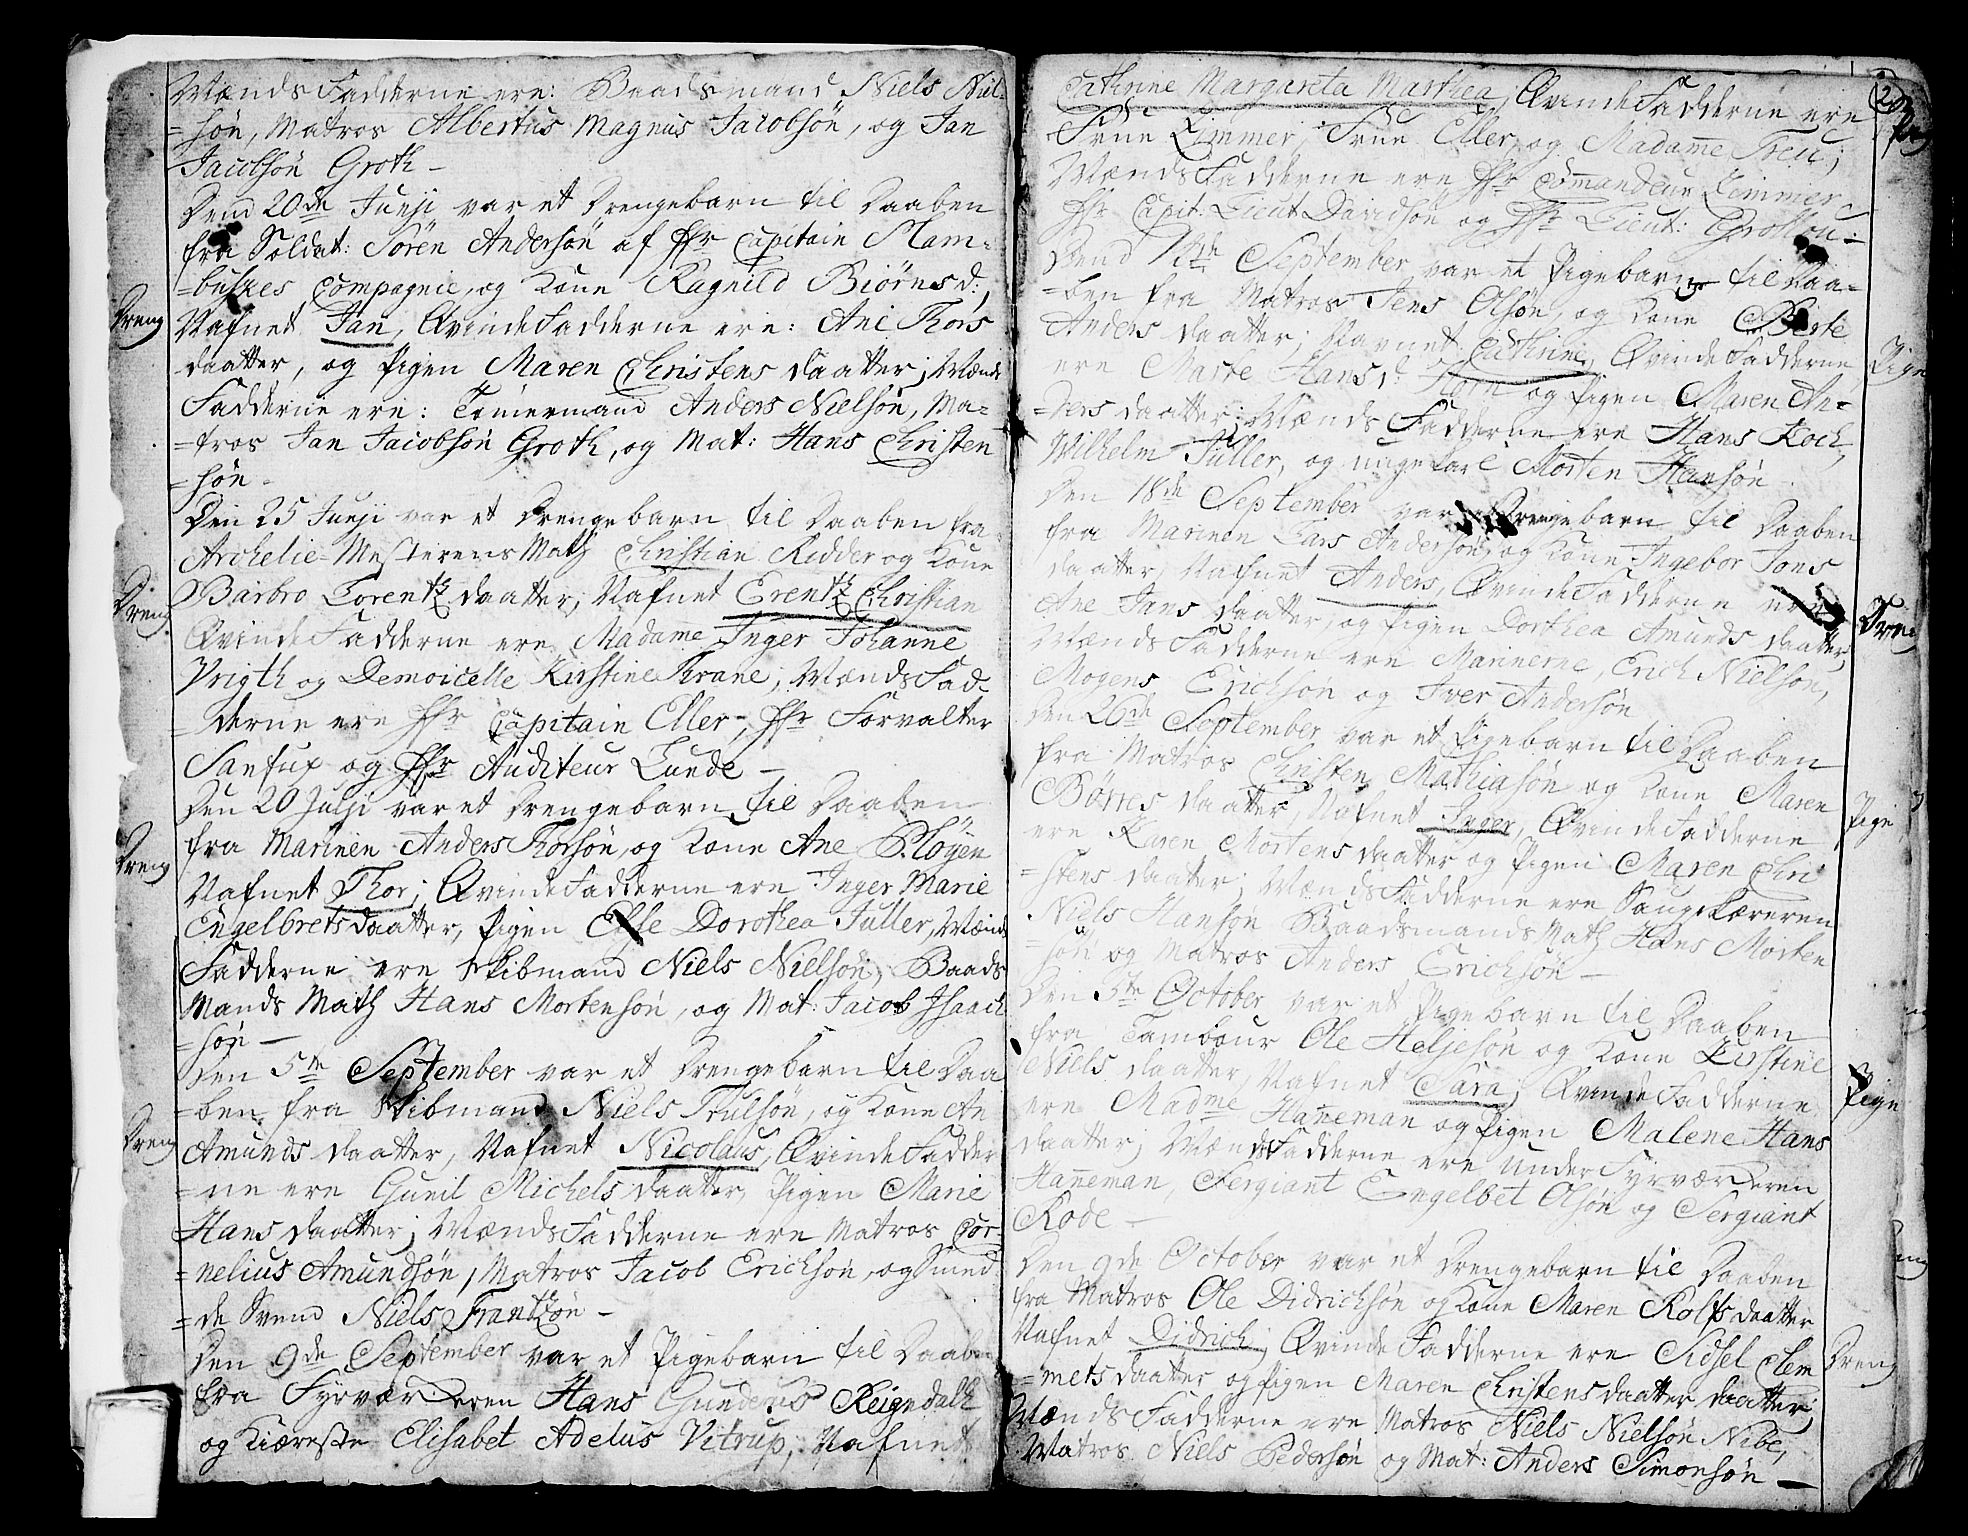 Mænds Fadderne ere: Baadsmand Niels Niel=
=søn, Matros Albertus Magnus Jacobsøn, og Jan
Jacobsøn Groth –
Dend 20de Junji var et Drengebarn til Daaben
fra Soldat: Sören Andersøn af Hr Capitain Stam=
=buhses Compagnie, og Kone Ragnild Biørnsd:,
Nafnet Jan, Qvinde Fadderne ere: Ane Thors
daatter, og Pigen Maren Christens daatter; Mænds
Fadderne ere: Tømermand Anders Nielsøn, Ma=
=tros Jan Jacobsøn Groth, og Mat: Hans Christen
=søn –
Dreng
Den 25 Junji var et Drengebarn til Daaben fra
Archelie-Mesterens Math Christian Ridder og Kone
Barbro Lorentz daatter; Nafnet Erentz Christian
Qvinde Fadderne ere Madame Inger Johanne
Vrigth og Demoicelle Kirstine Krane; Mænds Fad=
=derne ere Hr Capitain Eller, Hr Forvalter
Sanfux og Hr Auditeur Lunde –
Dreng
Den 20 Julji var et Drengebarn til Daaben
fra Marinen Anders Thorsøn, og Kone Ane Pløyen
Nafnet Thor; Qvinde Fadderne ere Inger Marie
Engelbrets daatter, Pigen Else Dorothea Tuller, Mænds
Fadderne ere Skibmand Niels Nielsøn, Baads
Mands Math Hans Mortensøn, og Mat: Jacob Isaach
=søn –
Dreng
Den 5te September var et Drengebarn til Daa
=ben fra Skibmand Niels Trulsøn, og Kone An
Amunds daatter, Nafnet Nicolaus, Qvinde Fadder
=ne ere Gunil Michels daatter, Pigen Marie
Hans daatter; Mænds Fadderne ere Matros Cor=
=nelius Amundsøn, Matros Jacob Ericksøn, og Smed
=de Svend Niels Frantzøn –
Dreng
Den 9de September var et Pigebarn til Daaben
fra Fyrværkeren Hans Gunderus Reigndalh
og Kiæreste Elisabet Adelus Vitrup, Nafnet
2
Cathrine Margareta Marthea, Qvinde Fadderne ere
Frue Zimmer, Frue Eller, og Madame Treu;
Mænds Fadderne ere Hr Comandeur Zimmer,
Hr Capit: Lieut Davidsøn og Hr Lieut: Grottou –
Dend 12te September var et Pigebarn til Daa=
=ben fra Matros Jens Olsøn, og Kone Berte
Anders daatter; Navnet Cathrine, Qvinde Fadderne
ere Marte Hans d: Horn og Pigen Maren An=
=ders daatter; Mænds Fadderne ere Hans Koch,
Wilhelm Tuller, og unge Karl Morten Hansøn.
Pige
Den 18de September var Drengebarn til Daaben
fra Marinen Lars Andersøn, og Kone Ingebor Jons
daatter, Nafnet Anders, Qvinde Fadderne ere
Ane Jans daatter, og Pigen Dorthea Amunds daatter,
Mænds Fadderne ere Marinerne Erich Nielsøn,
Mogens Erichson og Iver Andersøn
Dreng
Den 26de September var et Pigebarn til Daaben
fra Matros Christen Mathiasøn og Kone Maren
Børres daatter, Nafnet Inger, Qvinde Fadderne
ere Karen Mortens daatter og Pigen Maren Chri
=stens daatter; Mænds Fadderne ere
Niels Hansøn Baadsmands Math Hans Morten
=søn og Matros Anders Ericksøn –
Pige
Den 5te October var et Pigebarn til Daaben
fra Tambour Ole Heljesøn og Kone Kirstine
Niels daatter, Nafnet Sara, Qvinde Fadderne
ere Madme Haneman og Pigen Malene Hans
daatter; Mænds Fadderne ere Under Fyrværkeren
Haneman, Sergiant Engelbet Olsøn og Sergiant
Rode –
Pige
Den 9de October var et Drengebarn til Daaben
fra Matros Ole Didricksøn og Kone Maren Rolfs daatter
Nafnet Didrich, Qvinde Fadderne ere Sidsel Clem
=mets daatter og Pigen Maren Christens daatter daatter
Mænds Fadderne ere Matros Niels Nielsøn Nibe,
Matros Niels Pedersøn og Mat: Anders Simonsøn –
Dreng